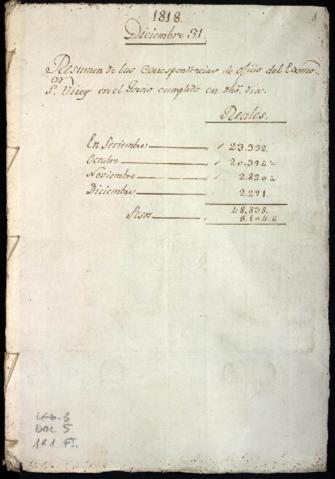 1818.
Diciembre 31.
Resumen de las Correspondencias de oficio del Exmo
Sor. Virey en el Tercio cumplido en dho. dia.
Reales.
En Septiembre 23.392.
Octubre 20.394
Noviembre 2.820
Diciembre 2.291.
48.898.
Pesos 6.104.6
Leg. 3
DOC. 5
181 FJ.